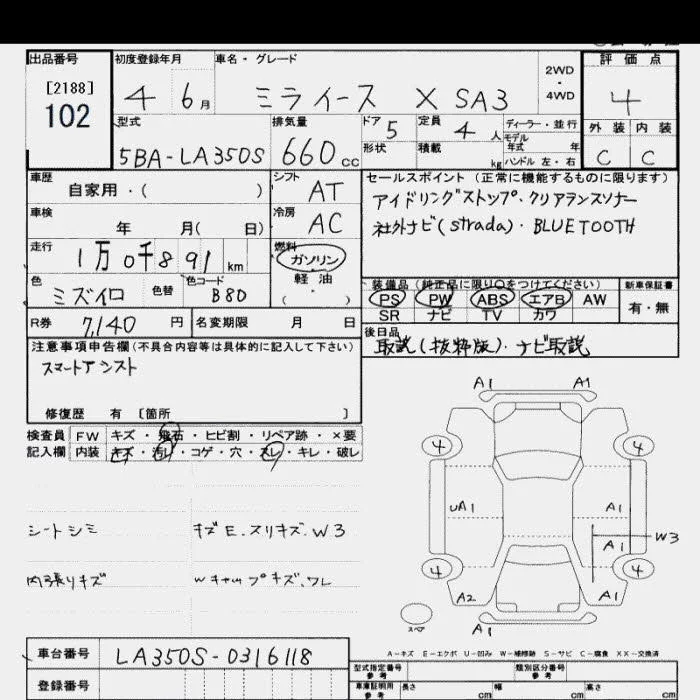 出品番号 初度登録年月 車名・グレード 2WD・4WD 評価点
[2188]
102
4 6月 ミライース X SA3 4
型式 排気量 ドア 5 定員 4人 ディーラー・並行 外装 内装
モデル年式 年
5BA-LA350S 660cc 形状 積載 kg ハンドル 左・右 C C
車歴 シフト セールスポイント(正常に機能するものに限ります)
自家用・( ) AT アイドリングストップ・クリアランスソナー
車検 冷房 社外ナビ(strada)・BLUETOOTH
年 月( 日) AC
走行 燃料
1万0千891km ガソリン
軽油
( ・ )
色 色替 色コード 装備品(純正品に限り○をつけてください) 新車保証書
ミズイロ B80 PS PW ABS エアB AW 有・無
SR ナビ TV カワ
R券 7,140円 名変期限 月 日 後日品
取説(抜粋版)・ナビ取説
注意事項申告欄(不具合内容等は具体的に記入して下さい)
スマートアシスト
修復歴 有 [箇所 ]
検査員 FW キズ・飛石・ヒビ割・リペア跡・×要
記入欄 内装 キズ・汚レ・コゲ・穴・スレ・キレ・破レ
A1 A1
4 4
UA1 A1
シートシミ キズE.スリキズ.W3
A1 W3
内張りキズ Wキャップキズ.ワレ
4 4
A2 A1
スペア A1
A-キズ E-エクボ U-凹み W-補修跡 S-サビ C-腐食 XX-交換済
車台番号 LA350S-0316118
型式指定番号 参考 類別区分番号 参考
登録番号
車庫証明用 参考 長さ cm 幅 cm 高さ cm